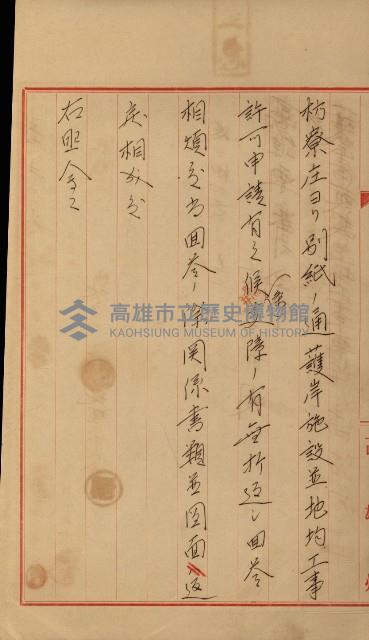 枋寮庄ヨリ別紙ノ通護岸施設並地均工事
許可申請有之候條支障ノ有無折返シ回答
相煩度尚回答ノ際関係書類並図面返
戻相成度
右照会ス
高雄市立歷史博物館
KAOHSIUNG MUSEUM OF HISTORY